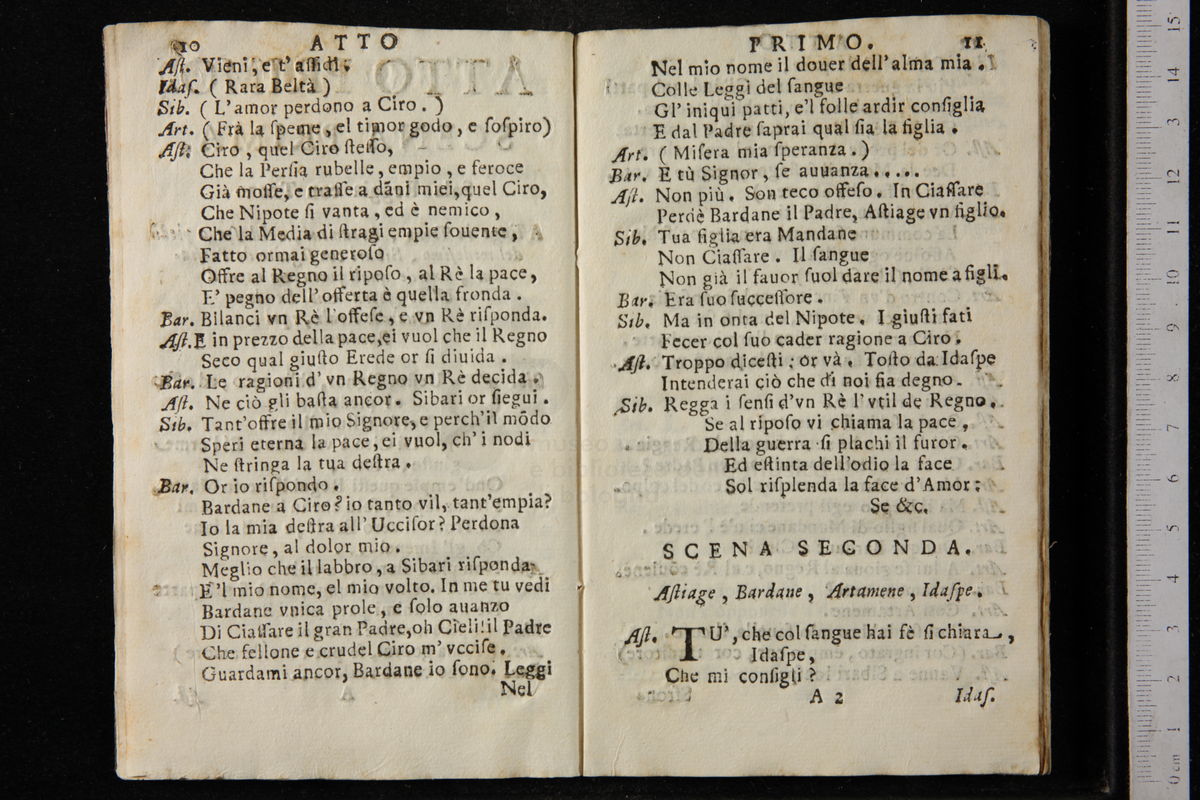 10 ATTO
Aſt. Vieni, e t'aſſidi.
Idaſ. ( Rara Beltà )
Sib. ( L'amor perdono a Ciro. )
Art. ( Frà la ſpeme, el timor godo, e ſoſpiro)
Aſt. Ciro, quel Ciro ſteſſo,
Che la Perſia rubelle, empio, e feroce
Già moſſe, e traſſe a dāni miei, quel Ciro,
Che Nipote ſi vanta, ed è nemico,
Che la Media di ſtragi empie ſouente,
Fatto ormai generoſo
Offre al Regno il ripoſo, al Rè la pace,
E' pegno dell'offerta è quella fronda.
Bar. Bilanci vn Rè l'offeſe, e vn Rè riſponda.
Aſt. E in prezzo della pace, ei vuol che il Regno
Seco qual giuſto Erede or ſi diuida.
Bar. Le ragioni d'vn Regno vn Rè decida.
Aſt. Ne ciò gli baſta ancor. Sibari or ſiegui.
Sib. Tant'offre il mio Signore, e perch'il mōdo
Speri eterna la pace, ei vuol, ch'i nodi
Ne ſtringa la tua deſtra.
Bar. Or io riſpondo.
Bardane a Ciro? io tanto vil, tant'empia?
Io la mia deſtra all'Ucciſor? Perdona
Signore, al dolor mio.
Meglio che il labbro, a Sibari riſponda
E'l mio nome, el mio volto. In me tu vedi
Bardane vnica prole, e ſolo auanzo
Di Ciaſſare il gran Padre, oh Cieli! il Padre
Che fellone e crudel Ciro m'vcciſe.
Guardami ancor, Bardane io ſono. Leggi
Nel
PRIMO. 11
Nel mio nome il douer dell'alma mia.
Colle Leggi del ſangue
Gl'iniqui patti, e'l folle ardir conſiglia
E dal Padre ſaprai qual ſia la figlia.
Art. ( Miſera mia ſperanza. )
Bar. E tù Signor, ſe auuanza.....
Aſt. Non più. Son teco offeſo. In Ciaſſare
Perdè Bardane il Padre, Aſtiage vn figlio.
Sib. Tua figlia era Mandane
Non Ciaſſare. Il ſangue
Non già il fauor ſuol dare il nome a figli.
Bar. Era ſuo ſucceſſore.
Sib. Ma in onta del Nipote. I giuſti fati
Fecer col ſuo cader ragione a Ciro.
Aſt. Troppo diceſti; or và. Toſto da Idaſpe
Intenderai ciò che di noi ſia degno.
Sib. Regga i ſenſi d'vn Rè l'vtil de Regno.
Se al ripoſo vi chiama la pace,
Della guerra ſi plachi il furor.
Ed eſtinta dell'odio la face
Sol riſplenda la face d'Amor:
Se &c.
SCENA SECONDA.
Aſtiage, Bardane, Artamene, Idaſpe.
Aſt. TU', che col ſangue hai fè ſi chiara,
Idaſpe,
Che mi conſigli?
A 2 Idaſ.